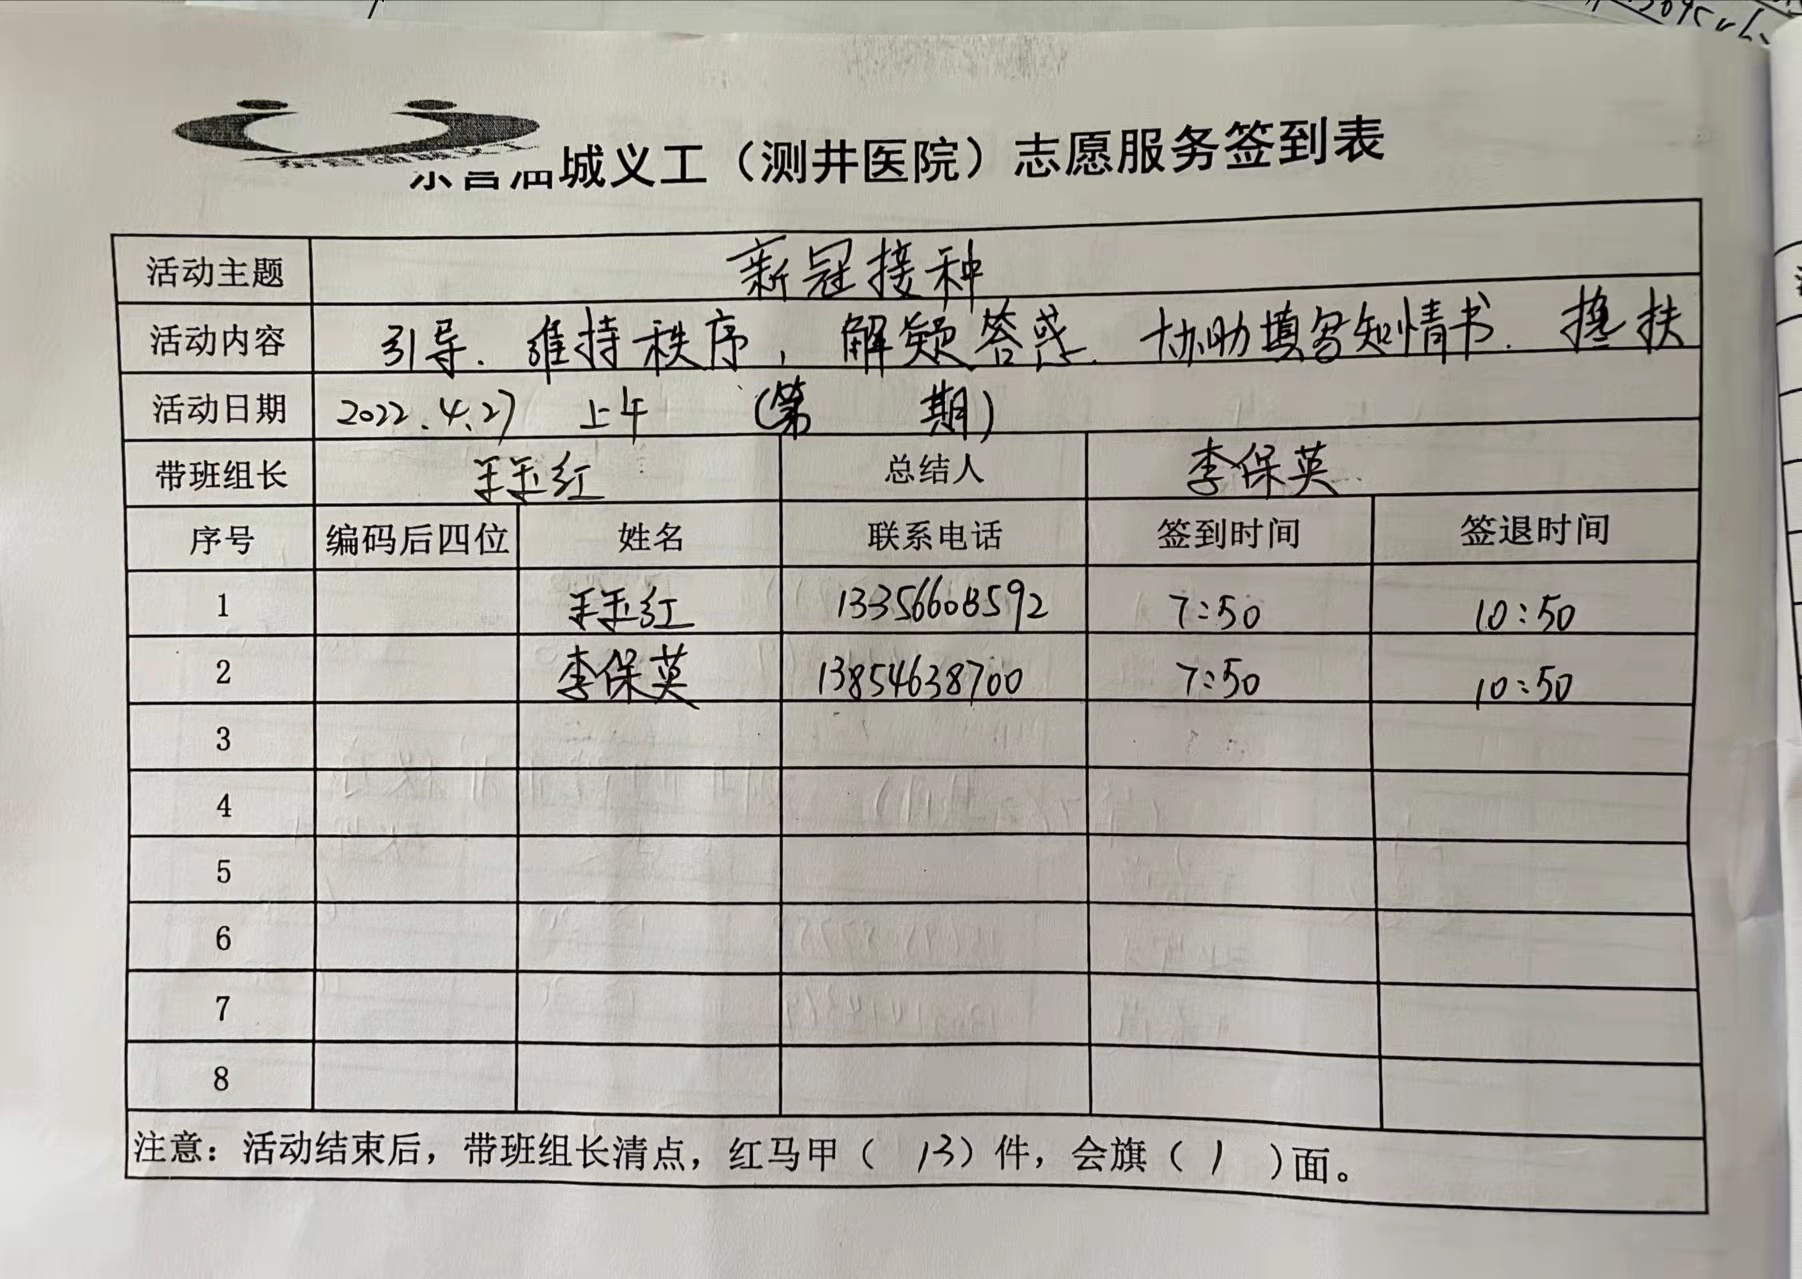 东营油城义工（测井医院）志愿服务签到表
活动主题 新冠接种
活动内容 引导、维持秩序，解疑答惑、协助填写知情书、搀扶
活动日期 2022.4.27 上午 （第 期）
带班组长 王玉红 总结人 李保英
序号 编码后四位 姓名 联系电话 签到时间 签退时间
1 王玉红 13356608592 7:50 10:50
2 李保英 13854638700 7:50 10:50
3
4
5
6
7
8
注意：活动结束后，带班组长清点，红马甲（ 13）件，会旗（ 1 ）面。